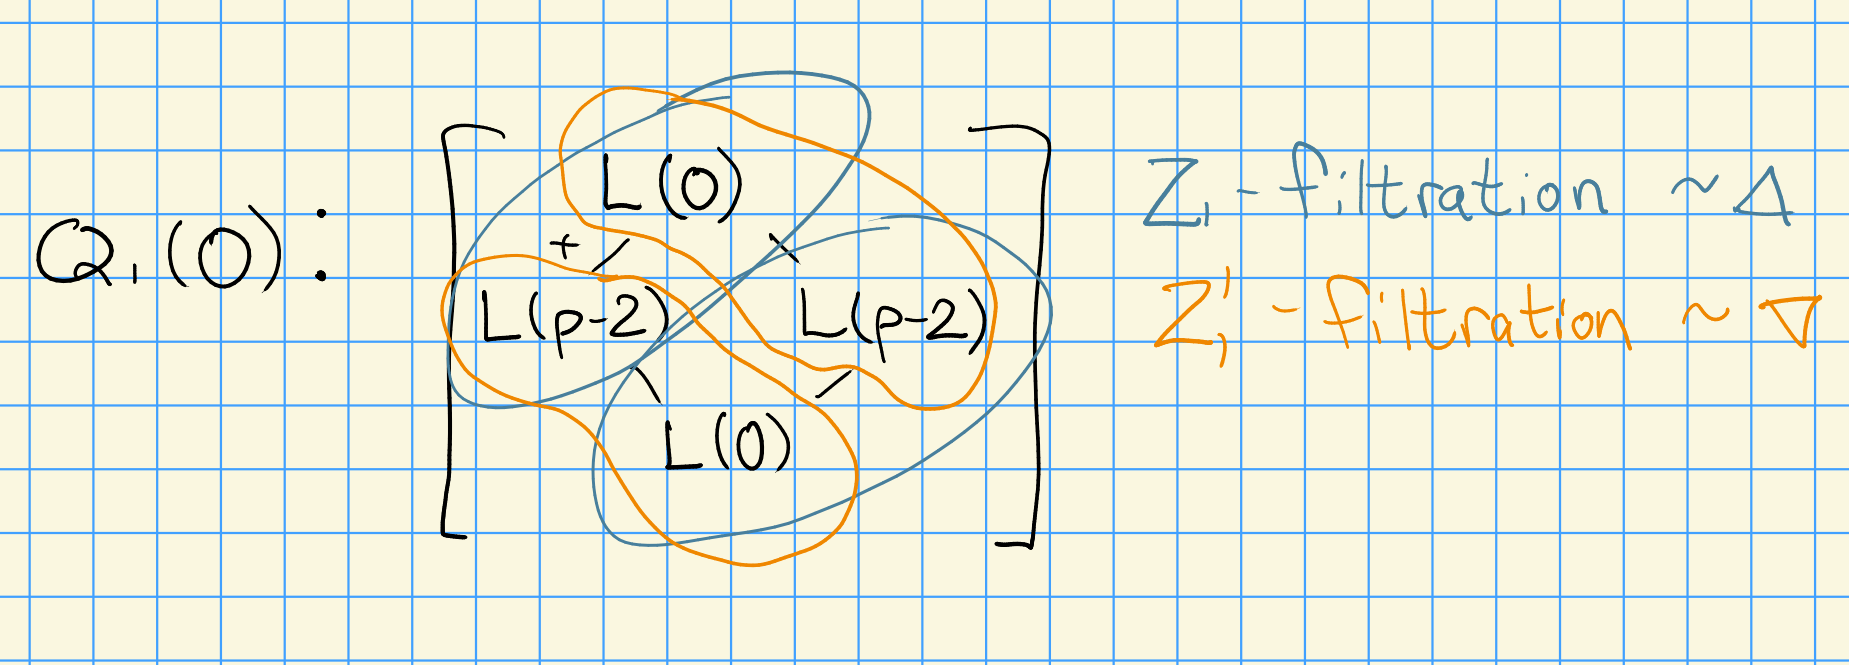 Q₁(0):
L(0)
+
L(p-2) L(p-2)
L(0)
Z₁-filtration ~Δ
Z₁'-filtration ~∇